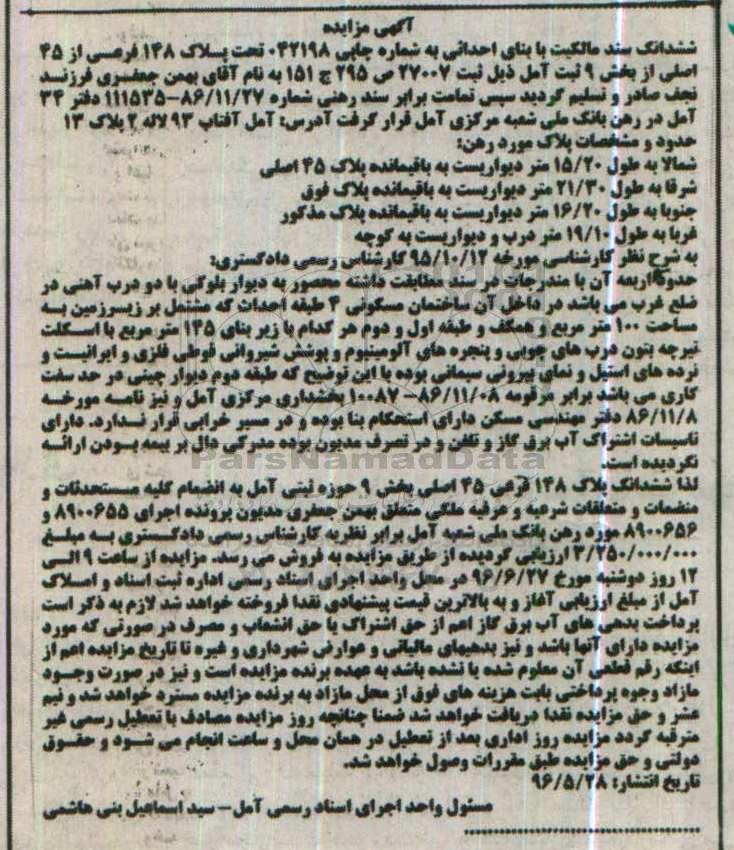 آگهی مزایده
ششدانگ سند مالکیت با بنای احداثی به شماره چاپی ۰۴۲۱۹۸ تحت پلاک ۱۴۸ فرعی از ۴۵
اصلی از بخش ۹ ثبت آمل ذیل ثبت ۲۷۰۰۷ ص ۲۹۵ ج ۱۵۱ به نام آقای بهمن جعفری فرزند
نجف صادر و تسلیم گردید سپس تمامت برابر سند رهنی شماره ۸۶/۱۱/۲۷-۱۱۱۵۳۵ دفتر ۳۴
آمل در رهن بانک ملی شعبه مرکزی آمل قرار گرفت آدرس: آمل آفتاب ۹۳ لاله ۲ پلاک ۱۳
حدود و مشخصات پلاک مورد رهن:
شمالا به طول ۱۵/۲۰ متر دیواریست به باقیمانده پلاک ۴۵ اصلی
شرقا به طول ۲۱/۳۰ متر دیواریست به باقیمانده پلاک فوق
جنوبا به طول ۱۶/۲۰ متر دیواریست به باقیمانده پلاک مذکور
غربا به طول ۱۹/۱۰ متر درب و دیواریست به کوچه
به شرح نظر کارشناسی مورخه ۹۵/۱۰/۱۲ کارشناس رسمی دادگستری:
حدود اربعه آن با مندرجات در سند مطابقت داشته محصور به دیوار بلوکی با دو درب آهنی در
ضلع غرب می باشد در داخل آن ساختمان مسکونی ۴ طبقه احداث که مشتمل بر زیرزمین به
مساحت ۱۰۰ متر مربع و همکف و طبقه اول و دوم هر کدام با زیر بنای ۱۴۵ متر مربع با اسکلت
تیرچه بتون درب های چوبی و پنجره های آلومینیوم و پوشش شیروانی قوطی فلزی و ایرانیست و
نرده های استیل و نمای بیرونی سیمانی بوده با این توضیح که طبقه دوم دیوار چینی در حد سفت
کاری می باشد برابر مرقومه ۸۶/۱۱/۰۸-۱۰۰۸۷ بخشداری مرکزی آمل و نیز نامه مورخه
۸۶/۱۱/۸ دفتر مهندسی مسکن دارای استحکام بنا بوده و در مسیر خرابی قرار ندارد. دارای
تاسیسات اشتراک آب برق گاز و تلفن و در تصرف مدیون بوده مدرکی دال بر بیمه بودن ارائه
نگردیده است.
ParsNamadData
لذا ششدانگ پلاک ۱۴۸ فرعی ۴۵ اصلی بخش ۹ حوزه ثبتی آمل به انضمام کلیه مستحدثات و
منضمات و متعلقات شرعیه و عرفیه ملکی متعلق بهمن جعفری مدیون پرونده اجرای ۸۹۰۰۶۵۵ و
۸۹۰۰۶۵۶ مورد رهن بانک ملی شعبه آمل برابر نظریه کارشناس رسمی دادگستری به مبلغ
۳/۲۵۰/۰۰۰/۰۰۰ ارزیابی گردیده از طریق مزایده به فروش می رسد. مزایده از ساعت ۹ الی
۱۲ روز دوشنبه مورخ ۹۶/۶/۲۷ در محل واحد اجرای اسناد رسمی اداره ثبت اسناد و املاک
آمل از مبلغ ارزیابی آغاز و به بالاترین قیمت پیشنهادی نقدا فروخته خواهد شد لازم به ذکر است
پرداخت بدهی های آب برق گاز اعم از حق اشتراک یا حق انشعاب و مصرف در صورتی که مورد
مزایده دارای آنها باشد و نیز بدهیهای مالیاتی و عوارض شهرداری و غیره تا تاریخ مزایده اعم از
اینکه رقم قطعی آن معلوم شده یا نشده باشد به عهده برنده مزایده است و نیز در صورت وجود
مازاد وجوه پرداختی بابت هزینه های فوق از محل مازاد به برنده مزایده مسترد خواهد شد و نیم
عشر و حق مزایده نقدا دریافت خواهد شد ضمنا چنانچه روز مزایده مصادف با تعطیل رسمی غیر
مترقبه گردد مزایده روز اداری بعد از تعطیل در همان محل و ساعت انجام می شود و حقوق
دولتی و حق مزایده طبق مقررات وصول خواهد شد.
تاریخ انتشار: ۹۶/۵/۲۸
مسئول واحد اجرای اسناد رسمی آمل - سید اسماعیل بنی هاشمی